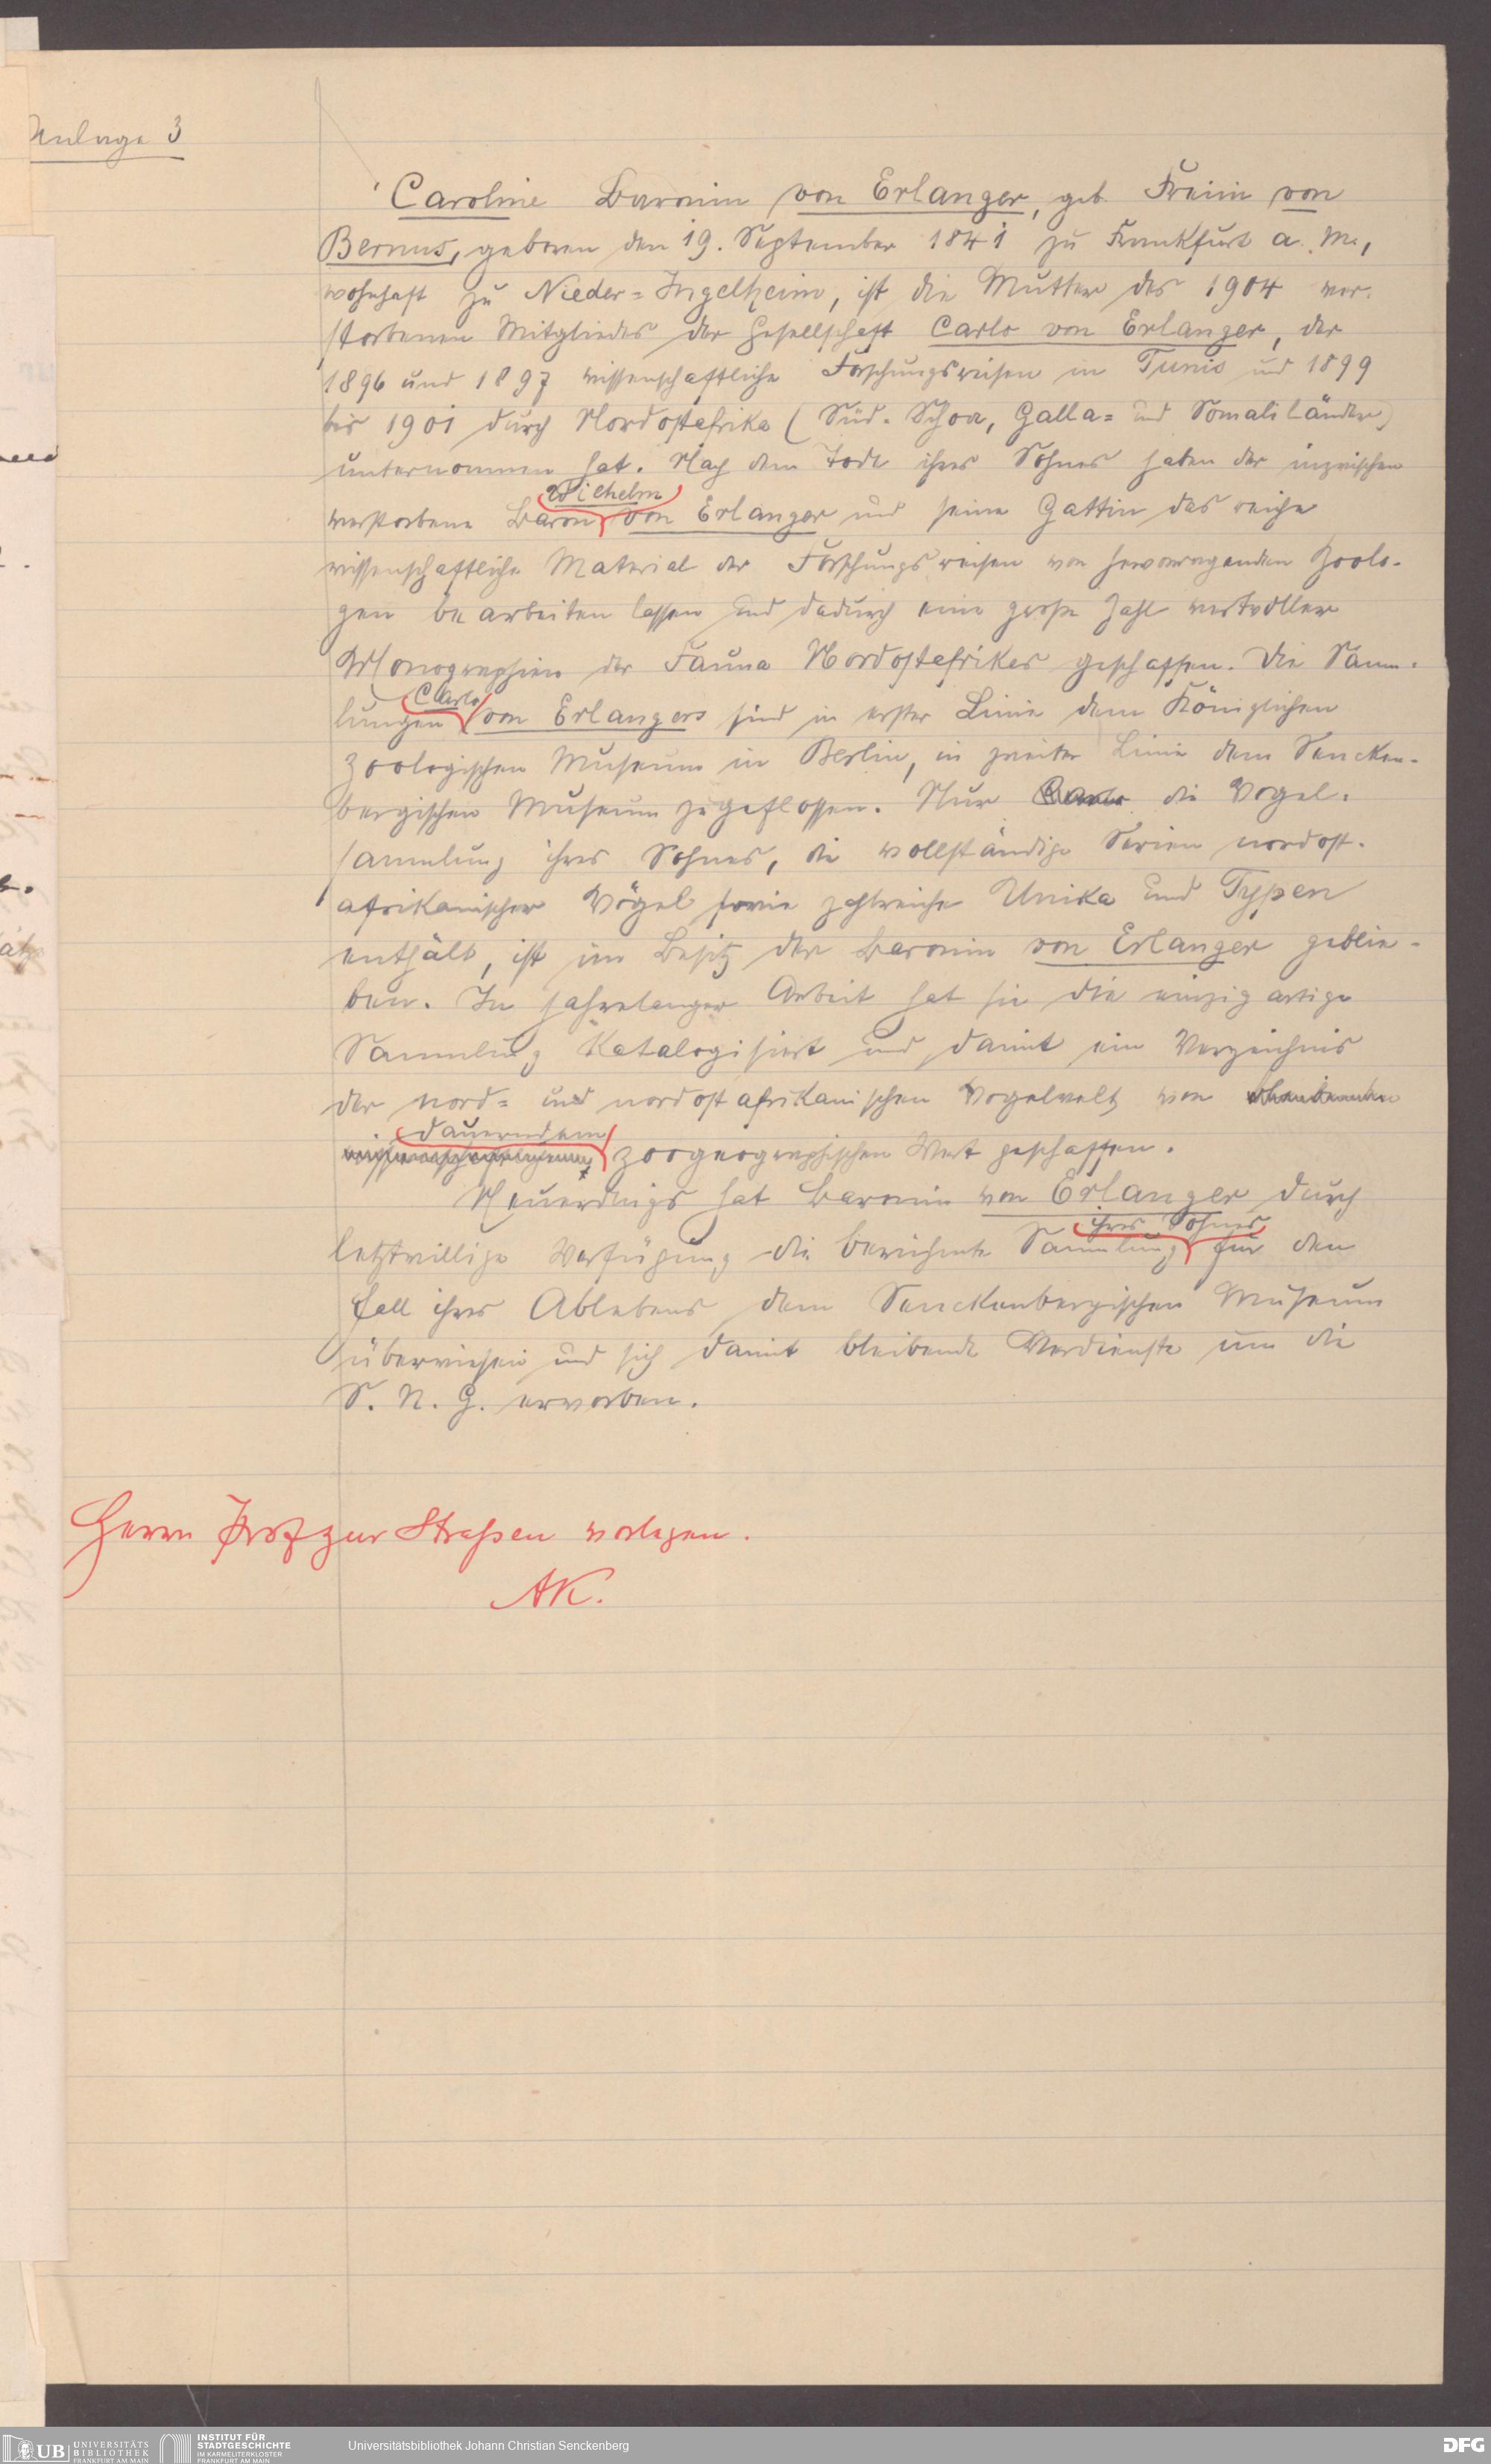 Anlage 3
Caroline Baronin von Erlanger, geb. Freiin von
Bernus, geboren den 19. September 1841 zu Frankfurt a. M.,
wohnhaft zu Nieder=Ingelheim, ist die Mutter des 1904 ver-
storbenen Mitgliedes der Gesellschaft Carlo von Erlanger, der
1896 und 1897 wissenschaftliche Forschungsreisen in Tunis und 1899
bis 1901 durch Nordostafrika (Süd-Schoa, Galla= und Somaliländer)
unternommen hat. Nach dem Tode ihres Sohnes haben der inzwischen
verstorbene Baron Wilhelm von Erlanger und seine Gattin das reiche
wissenschaftliche Material der Forschungsreisen von hervorragenden Zoolo-
gen bearbeiten lassen und dadurch eine große Zahl wertvoller
Monographien der Fauna Nordostafrikas geschaffen. Die Samm-
lungen Carlo von Erlangers sind in erster Linie dem Königlichen
Zoologischen Museum in Berlin, in zweiter Linie dem Sencken-
bergischen Museum zugeflossen. Nur die Vogel-
sammlung ihres Sohnes, die vollständige Serien nordost-
afrikanischer Vögel sowie zahlreiche Unika und Typen
enthält, ist im Besitz der Baronin von Erlanger geblie-
ben. In jahrelanger Arbeit hat sie die einzigartige
Sammlung katalogisiert und damit ein Verzeichnis
der nord= und nordostafrikanischen Vogelwelt von
dauerndem zoogeographischen Wert geschaffen.
Neuerdings hat Baronin von Erlanger durch
letztwillige Verfügung die berühmte Sammlung ihres Sohnes für den
Fall ihres Ablebens dem Senckenbergischen Museum
überwiesen und sich damit bleibende Verdienste um die
S. N. G. erworben.
Herrn Prof zur Strassen vorlegen.
AK.
UB UNIVERSITÄTS BIBLIOTHEK FRANKFURT AM MAIN
INSTITUT FÜR STADTGESCHICHTE IM KARMELITERKLOSTER FRANKFURT AM MAIN
Universitätsbibliothek Johann Christian Senckenberg
DFG